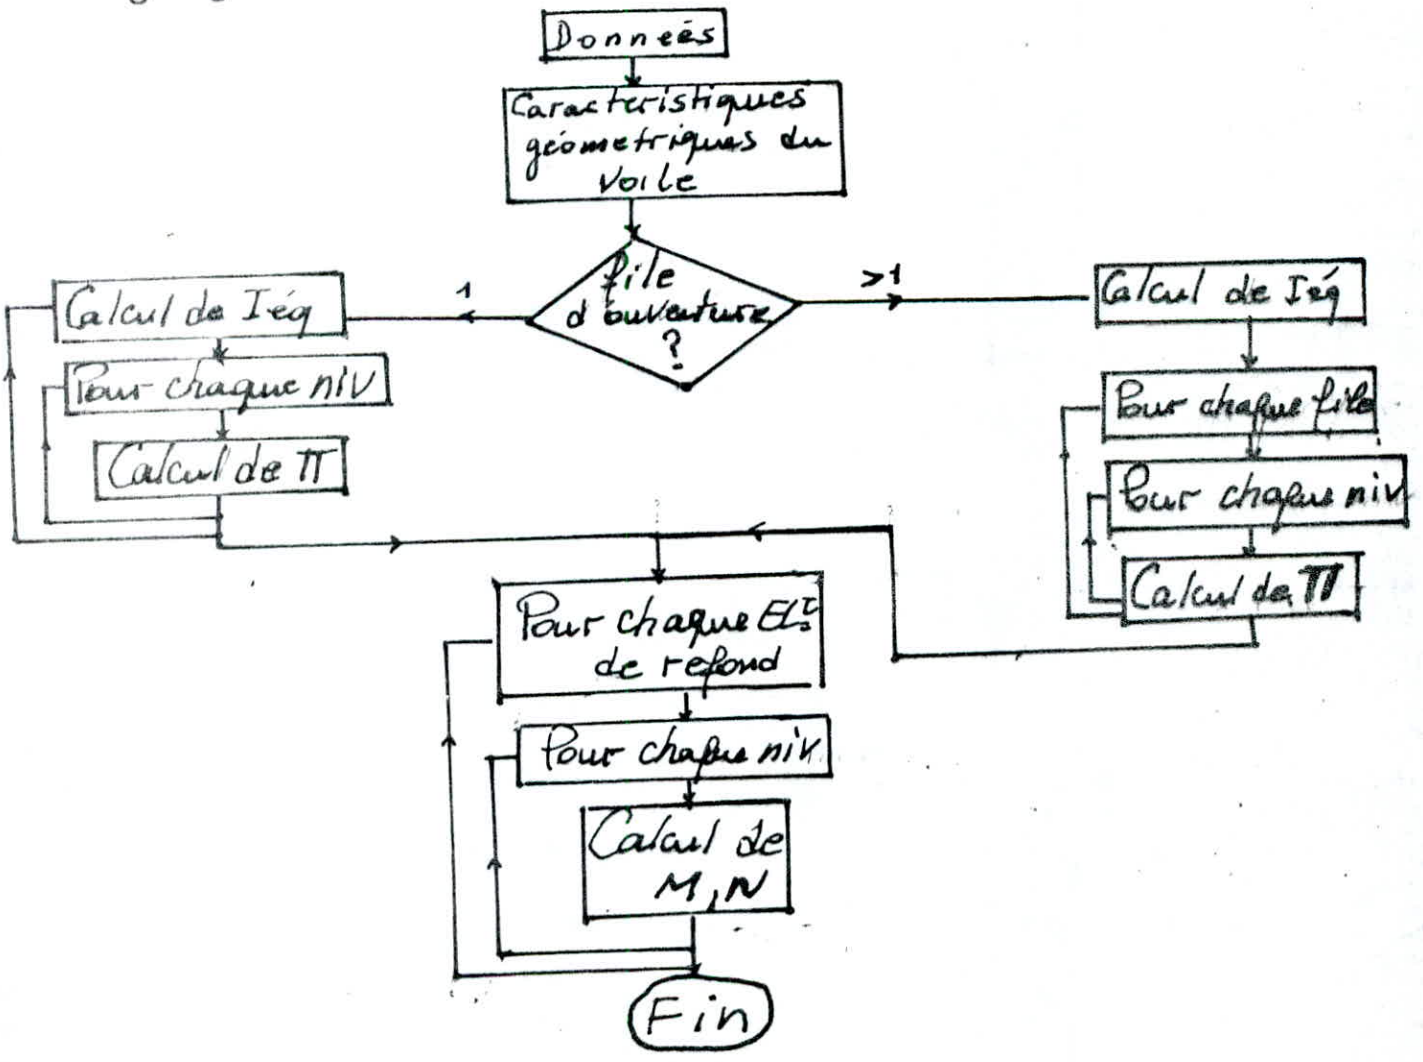 Donneés
Caracteristiques
géometriques du
voile
file
d'ouverture
?
1
>1
Calcul de I.éq
Pour chaque niv
Calcul de π
Calcul de I.éq
Pour chaque file
Pour chaque niv
Calcul de π
Pour chaque
de refond
Pour chaque niv
Calcul de
M, N
Fin